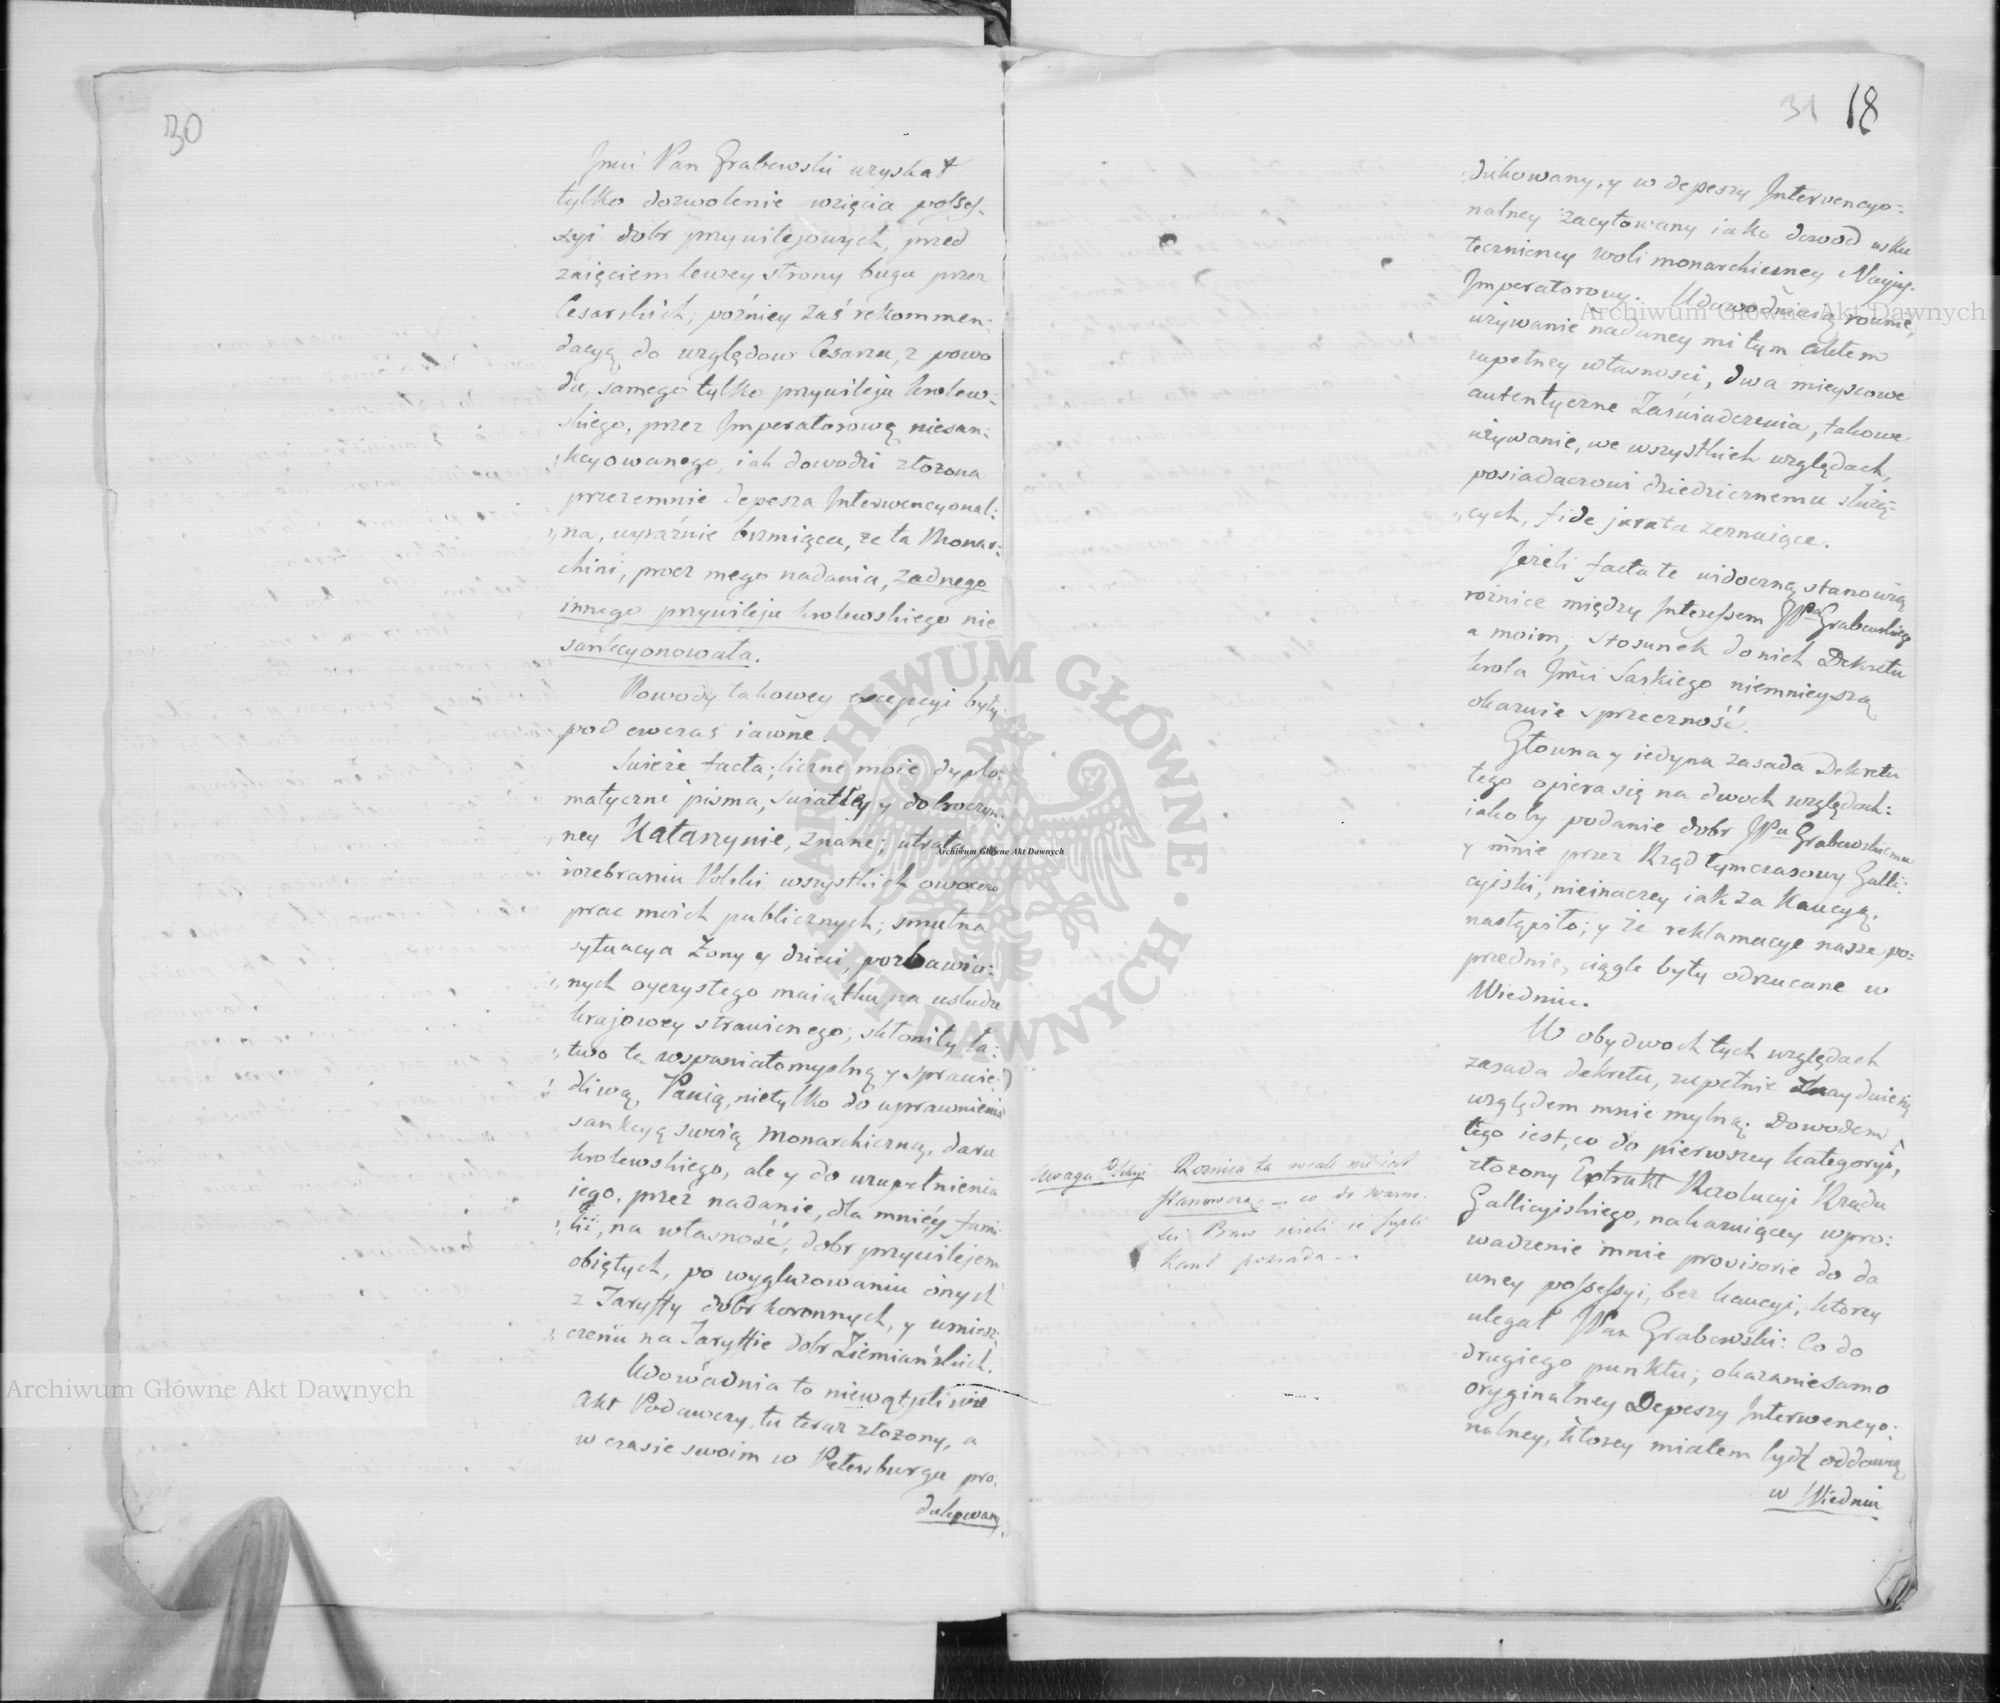 30
Jmći Pan Grabowski uzyskał
tylko dozwolenie wzięcia possef-
syi dobr przywilejowych, przed
zaięciem lewey strony bugu przez
Cesarskich, poźniey zaś rekommen:
dacyą do względow Cesarza, z powo
du, samego tylko przywileju krolew:
skiego, przez Imperatorowę niesan:
kcyowanego, iak dowodzi złożona
przezemnie depesza Interwencyonal:
na, wyraźnie brzmiąca, że ta Monar:
chini, procz mego nadania, żadnego
innego przywileju krolewskiego nie
sankcyonowała.
Powody takowey excepcyi były
pod owczas iawne.
Świeże facta; liczne moie dyplo:
matyczne pisma, światłey y dobroczyn:
ney Katarzynie, znane; utrata, po
rozebraniu Polski, wszystkich owocow
prac moich publicznych; smutna
sytuacya Żony y dzieci, pozbawio:
nych oyczystego maiątku, na usłudze
krajowey strawionego; skłoniły ła:
two tę wspaniałomyślną y sprawie:
dliwą, Panią, nietylko do uprawnienia
sankcyą swoią Monarchiczną, daru
krolewskiego, ale y do uzupełnienia
iego, przez nadanie, dla mnie y fami:
lii, na własność, dobr przywilejem
obiętych, po wygluzowaniu onych
z Taryffy dobr koronnych, y umiesz:
czeniu na Taryffie dobr Ziemiańskich.
Udowadnia to niewątpliwie
Akt Podawczy, tu teraz złożony, a
w czasie swoim w Petersburgu pro:
dukowany,
31 18
dukowany, y w depeszy Intervencyo:
nalney zacytowany iako dowod usku
tecznioney woli monarchiczney Nayiaś.
Imperatorowy. Udowodniaią rownie,
używanie nadaney mi tym aktem
zupełney własności, dwa mieyscowe
autentyczne Zaświadczenia, takowe
używanie, we wszystkich względach,
posiadaczowi dziedzicznemu służą:
cych, fide jurata zeznaiące.
Jeżeli facta te widoczną stanowią
rożnice między Interessem JPa Grabowskiego
a moim; stosunek do nich Dekretu
krola Jmći Saskiego niemnieyszą
okazuie sprzeczność.
Głowna y iedyna zasada Dekretu
tego opiera się na dwoch względach:
iakoby podanie dobr JPu Grabowskiemu
y mnie przez Rząd tymczasowy Galli:
cyiski, nieinaczey iak za Kaucyą,
nastąpiło; y że reklamacye nasze po:
przednie, ciągle były odrzucane w
Wiedniu.
W obydwoch tych względach
zasada dekretu, zupełnie znayduie się
względem mnie mylną: Dowodem
tego iest, co do pierwszey kategoryi,
złożony Extrakt Rezolucyi Rządu
Gallicyiskiego, nakazuiący wpro:
wadzenie mnie provisorie do da
wney possessyi, bez kaucyi, ktorey
ulegał JPan Grabowski: Co do
drugiego punktu; okazanie samo
oryginalney Depeszy Interwencyo:
nalney, ktorey miałem bydź oddawcą
w Wiedniu
Uwaga
Roznica ta wcale nie iest
stanowczą – co do
Praw
posiada –
Archiwum Główne Akt Dawnych
Archiwum Główne Akt Dawnych
Archiwum Główne Akt Dawnych
ARCHIWUM GŁÓWNE · AKT DAWNYCH ·